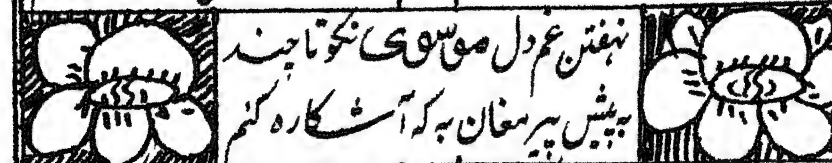 نهفتن غم دل موسوی نکو تا چند
به پیش پیر مغان به که آشکاره کنم